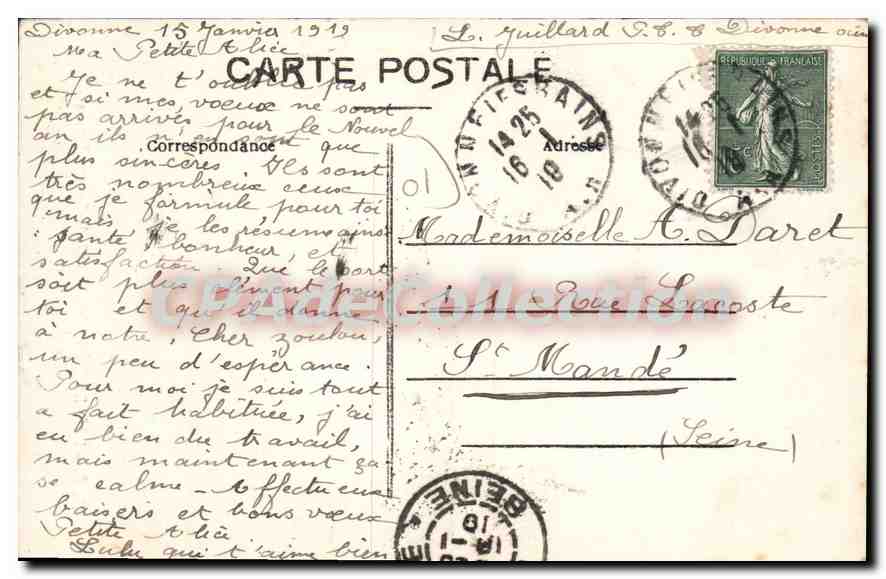 Divonne 15 Janvier 1919
Ma Petite Alice
Je ne t'oublie pas
et si mes voeux ne sont
pas arrivés pour le Nouvel
an ils n'en sont que
plus sincères. Ils sont
très nombreux ceux
que je formule pour toi
mais je les résume ainsi
: santé, bonheur, et
satisfaction. Que le sort
soit plus clément pour
toi et qu'il donne
à notre, Cher zoulou,
un peu d'espérance.
Pour moi je suis tout
a fait habituée, j'ai
eu bien du travail,
mais maintenant ça
se calme - Affectueux
baisers et bons voeux
Petite Alice
Lulu qui t'aime bien
L. Juillard P.T.T. Divonne
CARTE POSTALE
Correspondance
Adresse
RÉPUBLIQUE FRANÇAISE
POSTES
DIVONNE LES BAINS
14 25
16 -1
19
AIN
01
Mademoiselle A. Daret
11 Rue Lacoste
St Mandé
(Seine)
SEINE
19
CPAdeCollection